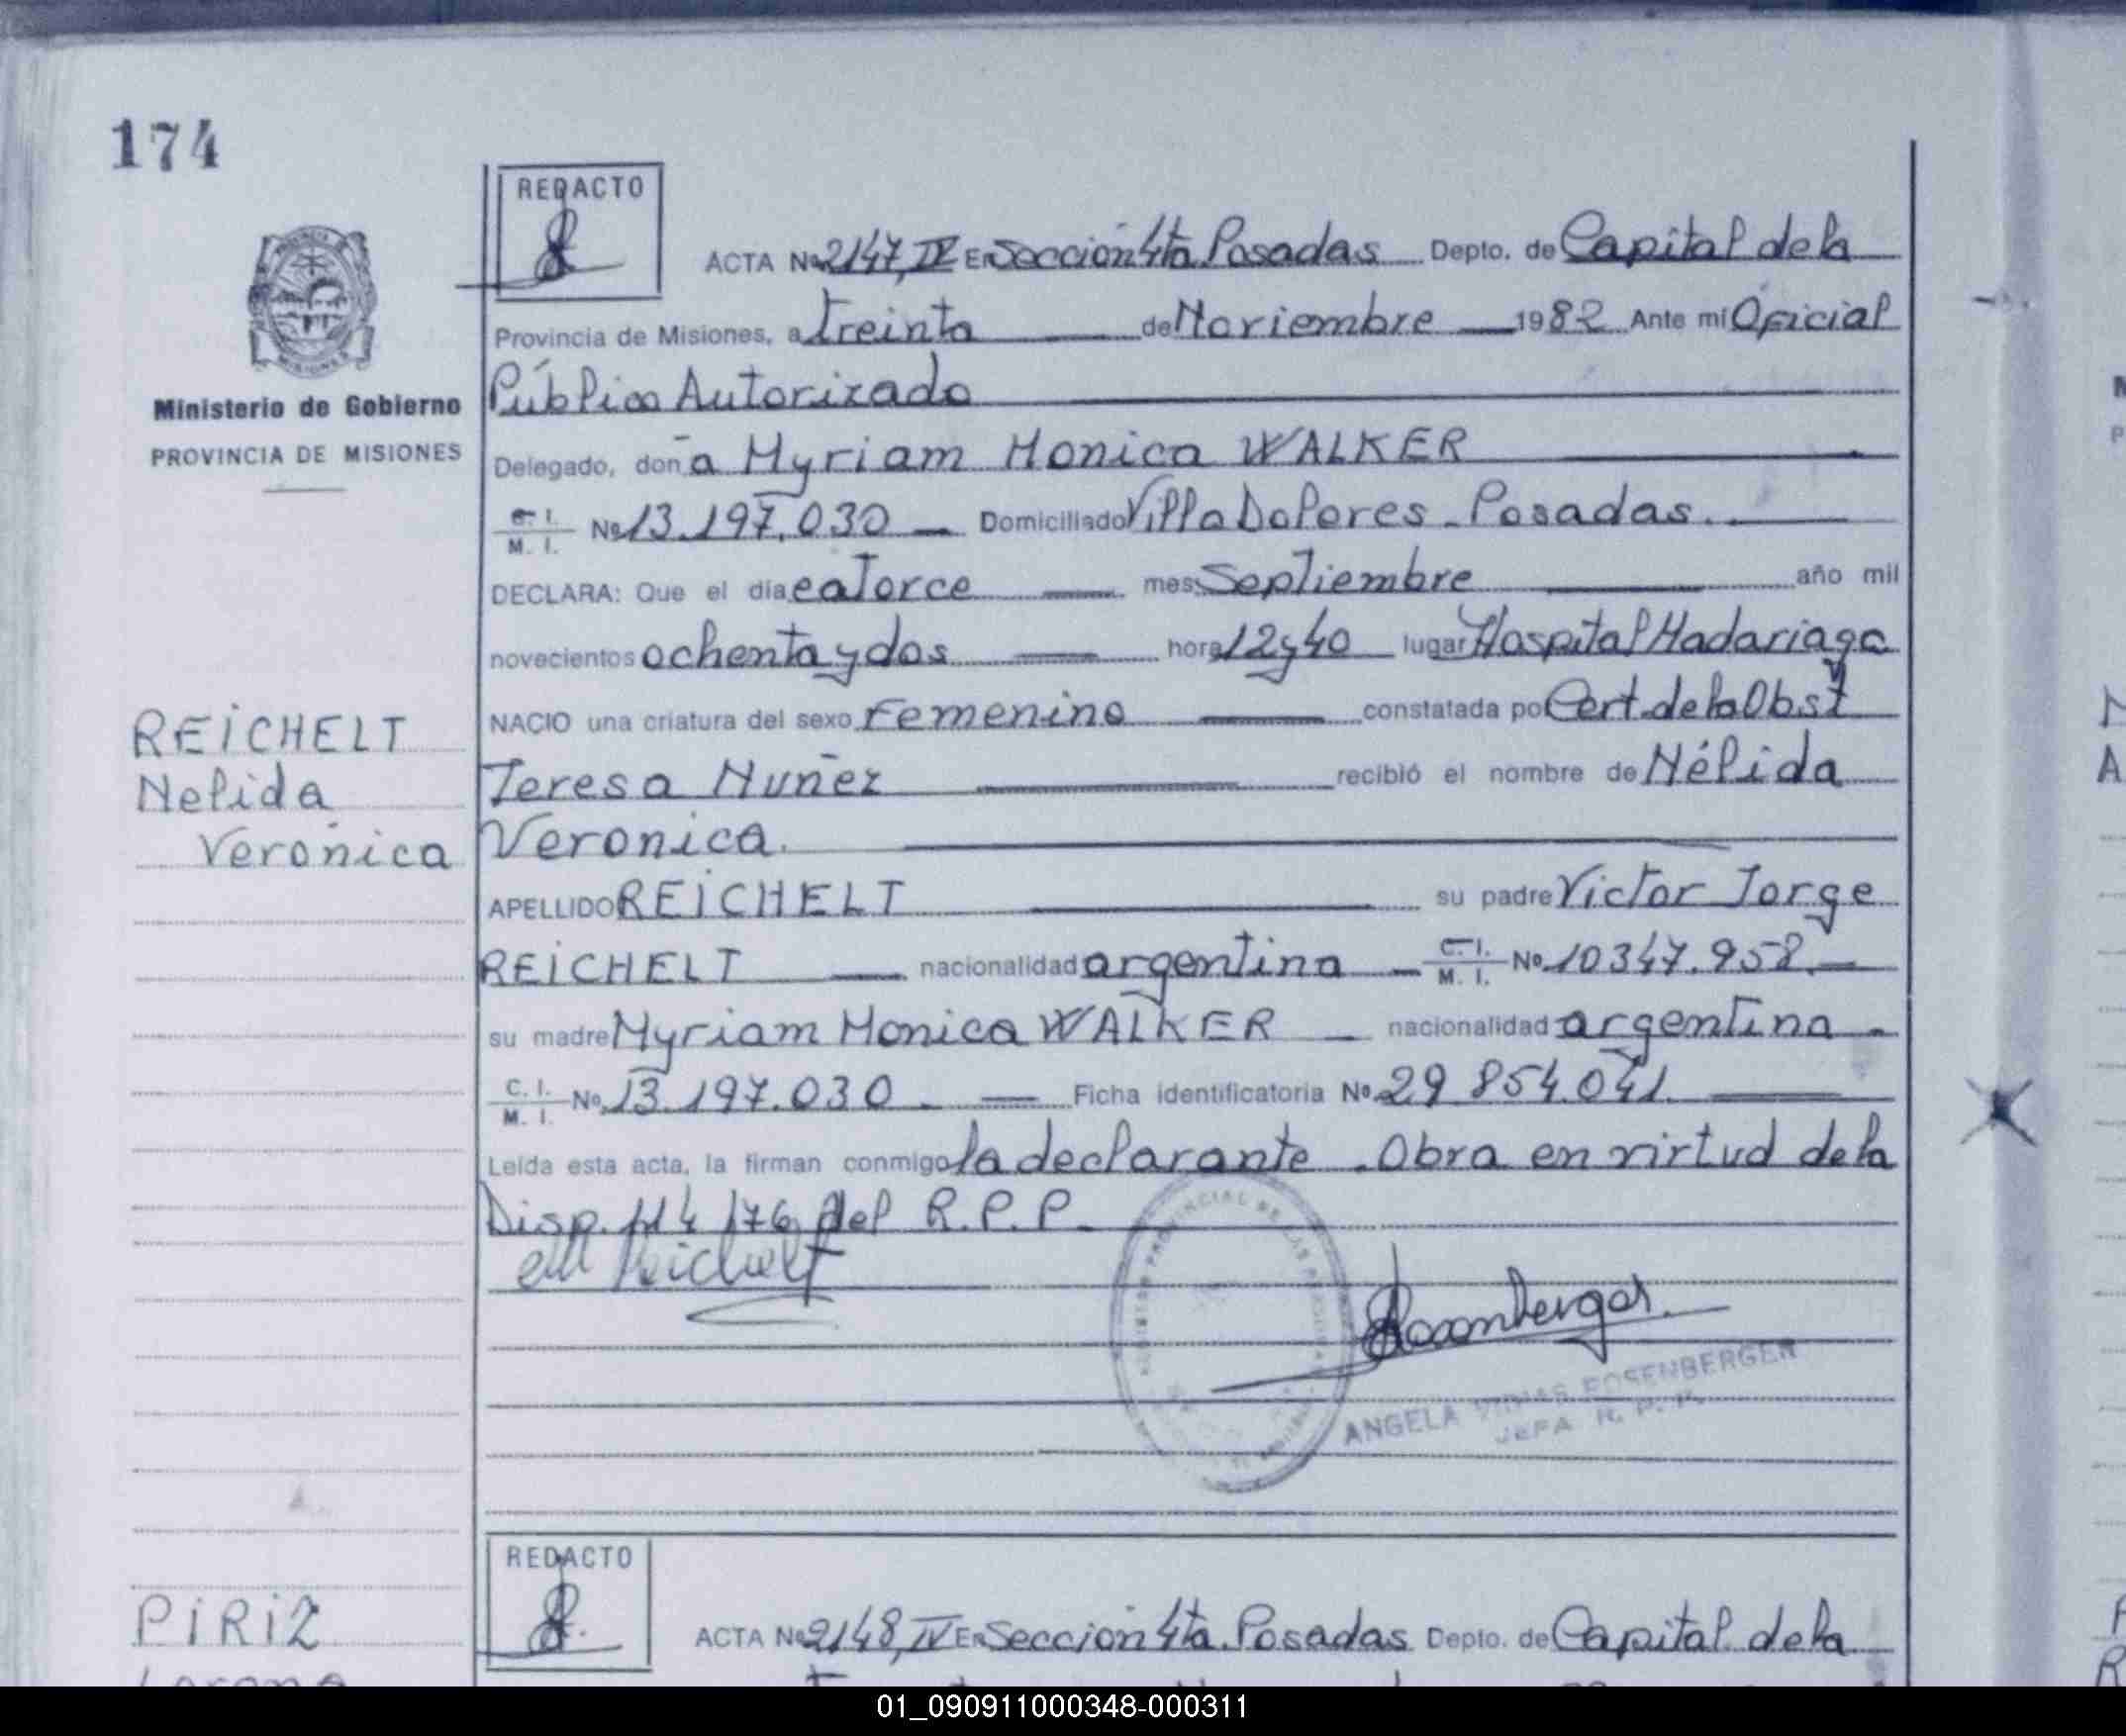 174
REDACTO
ACTA No 2147, IV En Sección 4ta Posadas Depto. de Capital de la
Provincia de Misiones, a treinta de Noviembre 1982 Ante mí Oficial
Ministerio de Gobierno
PROVINCIA DE MISIONES
Público Autorizado
Delegado, doña Myriam Monica WALKER
C. I. M. I. No 13.197.030 Domiciliado Villa Dolores - Posadas.
DECLARA: Que el día catorce mes Septiembre año mil
novecientos ochenta y dos hora 12 y 40 lugar Hospital Madariaga
NACIO una criatura del sexo Femenino constatada po Cert. de la Obst
Teresa Nuñez recibió el nombre de Nélida
Verónica.
REICHELT
Nelida
Verónica
APELLIDO REICHELT su padre Victor Jorge
REICHELT nacionalidad argentina C. I. M. I. No 10347.958.
su madre Myriam Monica WALKER nacionalidad argentina
C. I. M. I. No 13.197.030 Ficha identificatoria No 29 854.041
Leída esta acta, la firman conmigo la declarante. Obra en virtud de la
Disp. 114/76 del R.P.P.
Reichelt
Rosenberger
ANGELA ROSENBERGER
JEFA R. P. P.
REDACTO
PIRIZ
ACTA No 2148, IV En Sección 4ta. Posadas Depto. de Capital de la
01_090911000348-000311